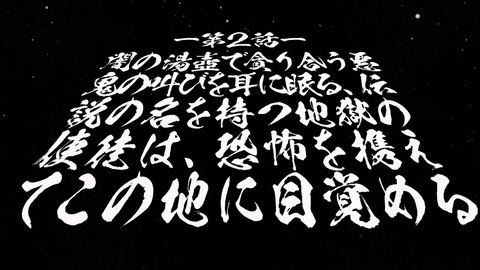 ー第2話ー
闇の湯壺で貪り合う悪
鬼の叫びを耳に眠る、伝
説の名を持つ地獄の
使徒は、恐怖を携え
てこの地に目覚める